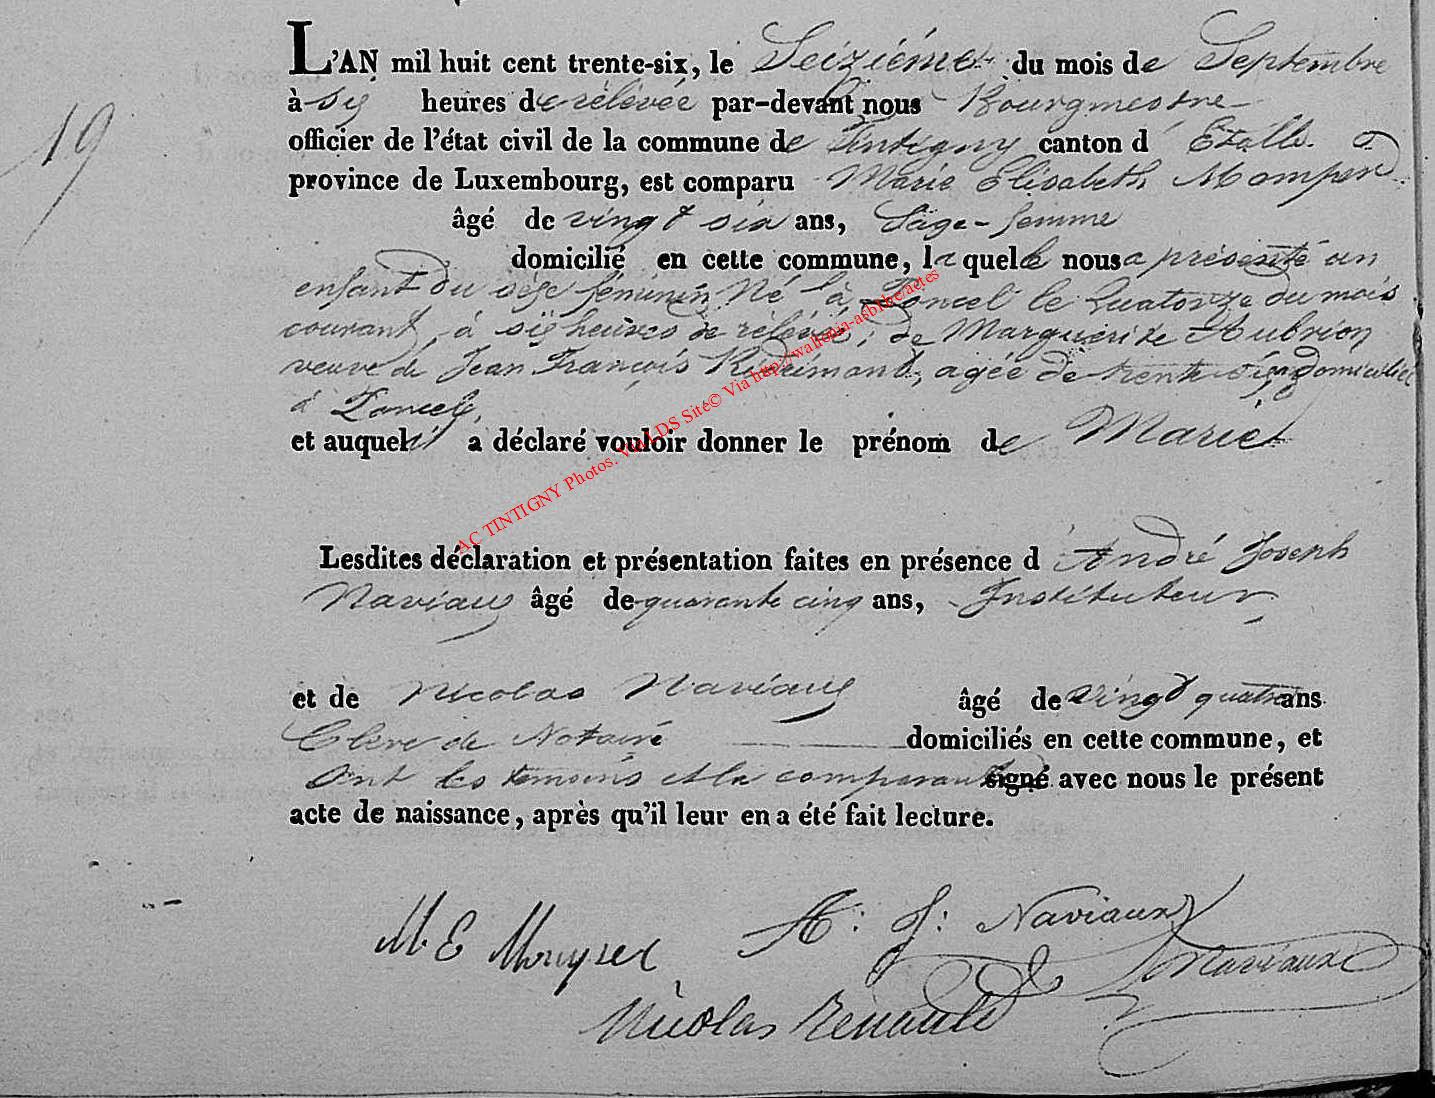 19
L'AN mil huit cent trente-six, le Seizième du mois de Septembre
à six heures de rélévée par-devant nous Bourgmestre
officier de l'état civil de la commune de Tintigny canton d' Etalle
province de Luxembourg, est comparu Marie Elisabeth
âgé de vingt six ans, Sage-femme
domicilié en cette commune, laquelle nous a présenté un
enfant du sèxe féminin Né à Poncel le Quatorze du mois
courant, à six heures de rélévée, de Marguerite Aubrion
veuve de Jean François agée de trente domiciliée
à Poncel,
et auquel il a déclaré vouloir donner le prénom de Marie
Lesdites déclaration et présentation faites en présence d' André Joseph
Naviaux âgé de quarante cinq ans, Instituteur
et de Nicolas Naviaux âgé de vingt quatre ans
Clerc de Notaire domiciliés en cette commune, et
Ont les témoins et la comparante signé avec nous le présent
acte de naissance, après qu'il leur en a été fait lecture.
M. E
A: J: Naviaux
Naviaux
Nicolas Renauld
AC TINTIGNY Photos. Via LDS Site© Via http://wallonia-asbl.be/actes